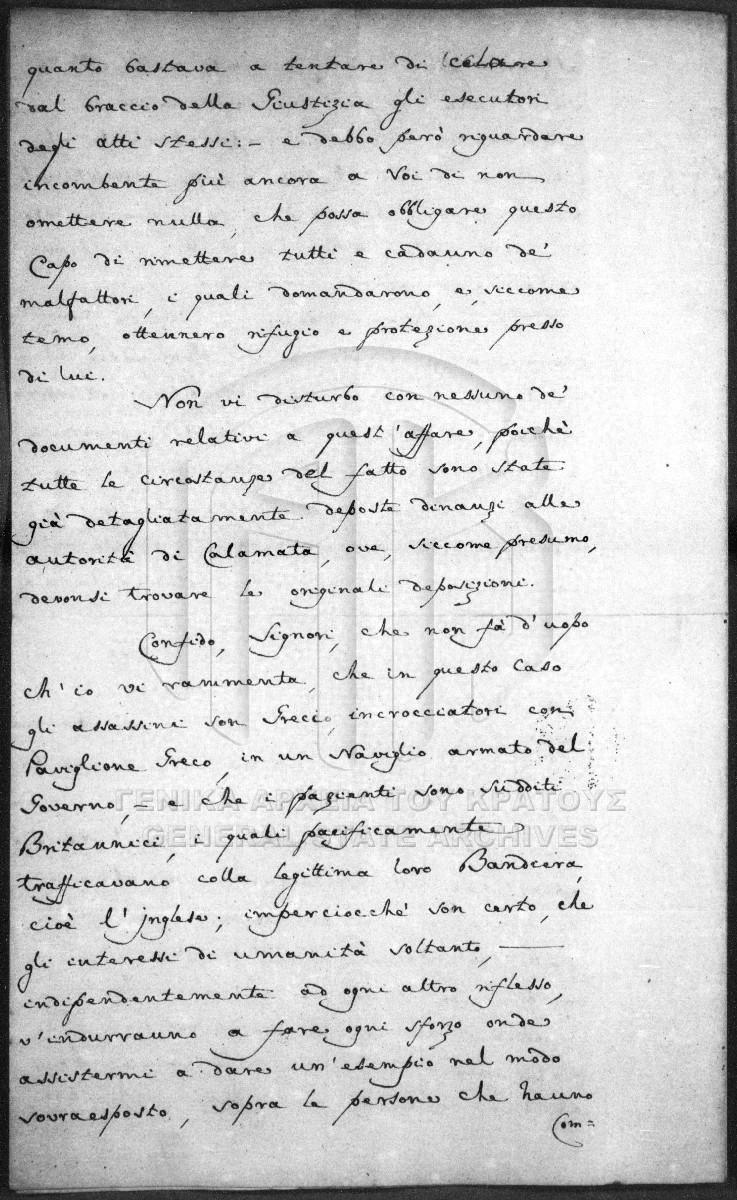 quanto bastava a tentare di celare
dal braccio della Giustizia gli esecutori
degli atti stessi: – e debbo però riguardare
incombente più ancora a Voi di non
omettere nulla, che possa obbligare questo
Capo di rimettere tutti e cadauno de'
malfattori, i quali domandarono, e, siccome
temo, ottennero rifugio e protezione presso
di lui.
Non vi disturbo con nessuno de'
documenti relativi a quest'affare, poichè
tutte le circostanze del fatto sono state
già detagliatamente deposte dinanzi alle
autorità di Calamata, ove, siccome presumo,
devonsi trovare le originali deposizioni.
Confido, Signori, che non fà d'uopo
ch'io vi rammenta, che in questo caso
gli assassini son Greci, incrocciatori con
Paviglione Greco, in un Naviglio armato del
Governo, – e che i pazienti sono sudditi
ΓΕΝΙΚΑ ΑΡΧΕΙΑ ΤΟΥ ΚΡΑΤΟΥΣ
GENERAL STATE ARCHIVES
Britannici, i quali pacificamente
trafficavano colla legittima loro Bandiera,
cioè l'inglese; imperciocchè son certo, che
gli interessi di umanità soltanto, —
indipendentemente ad ogni altro riflesso,
v'indurranno a fare ogni sforzo onde
assistermi a dare un'esempio nel modo
sovraesposto, sopra le persone che hanno
Com=